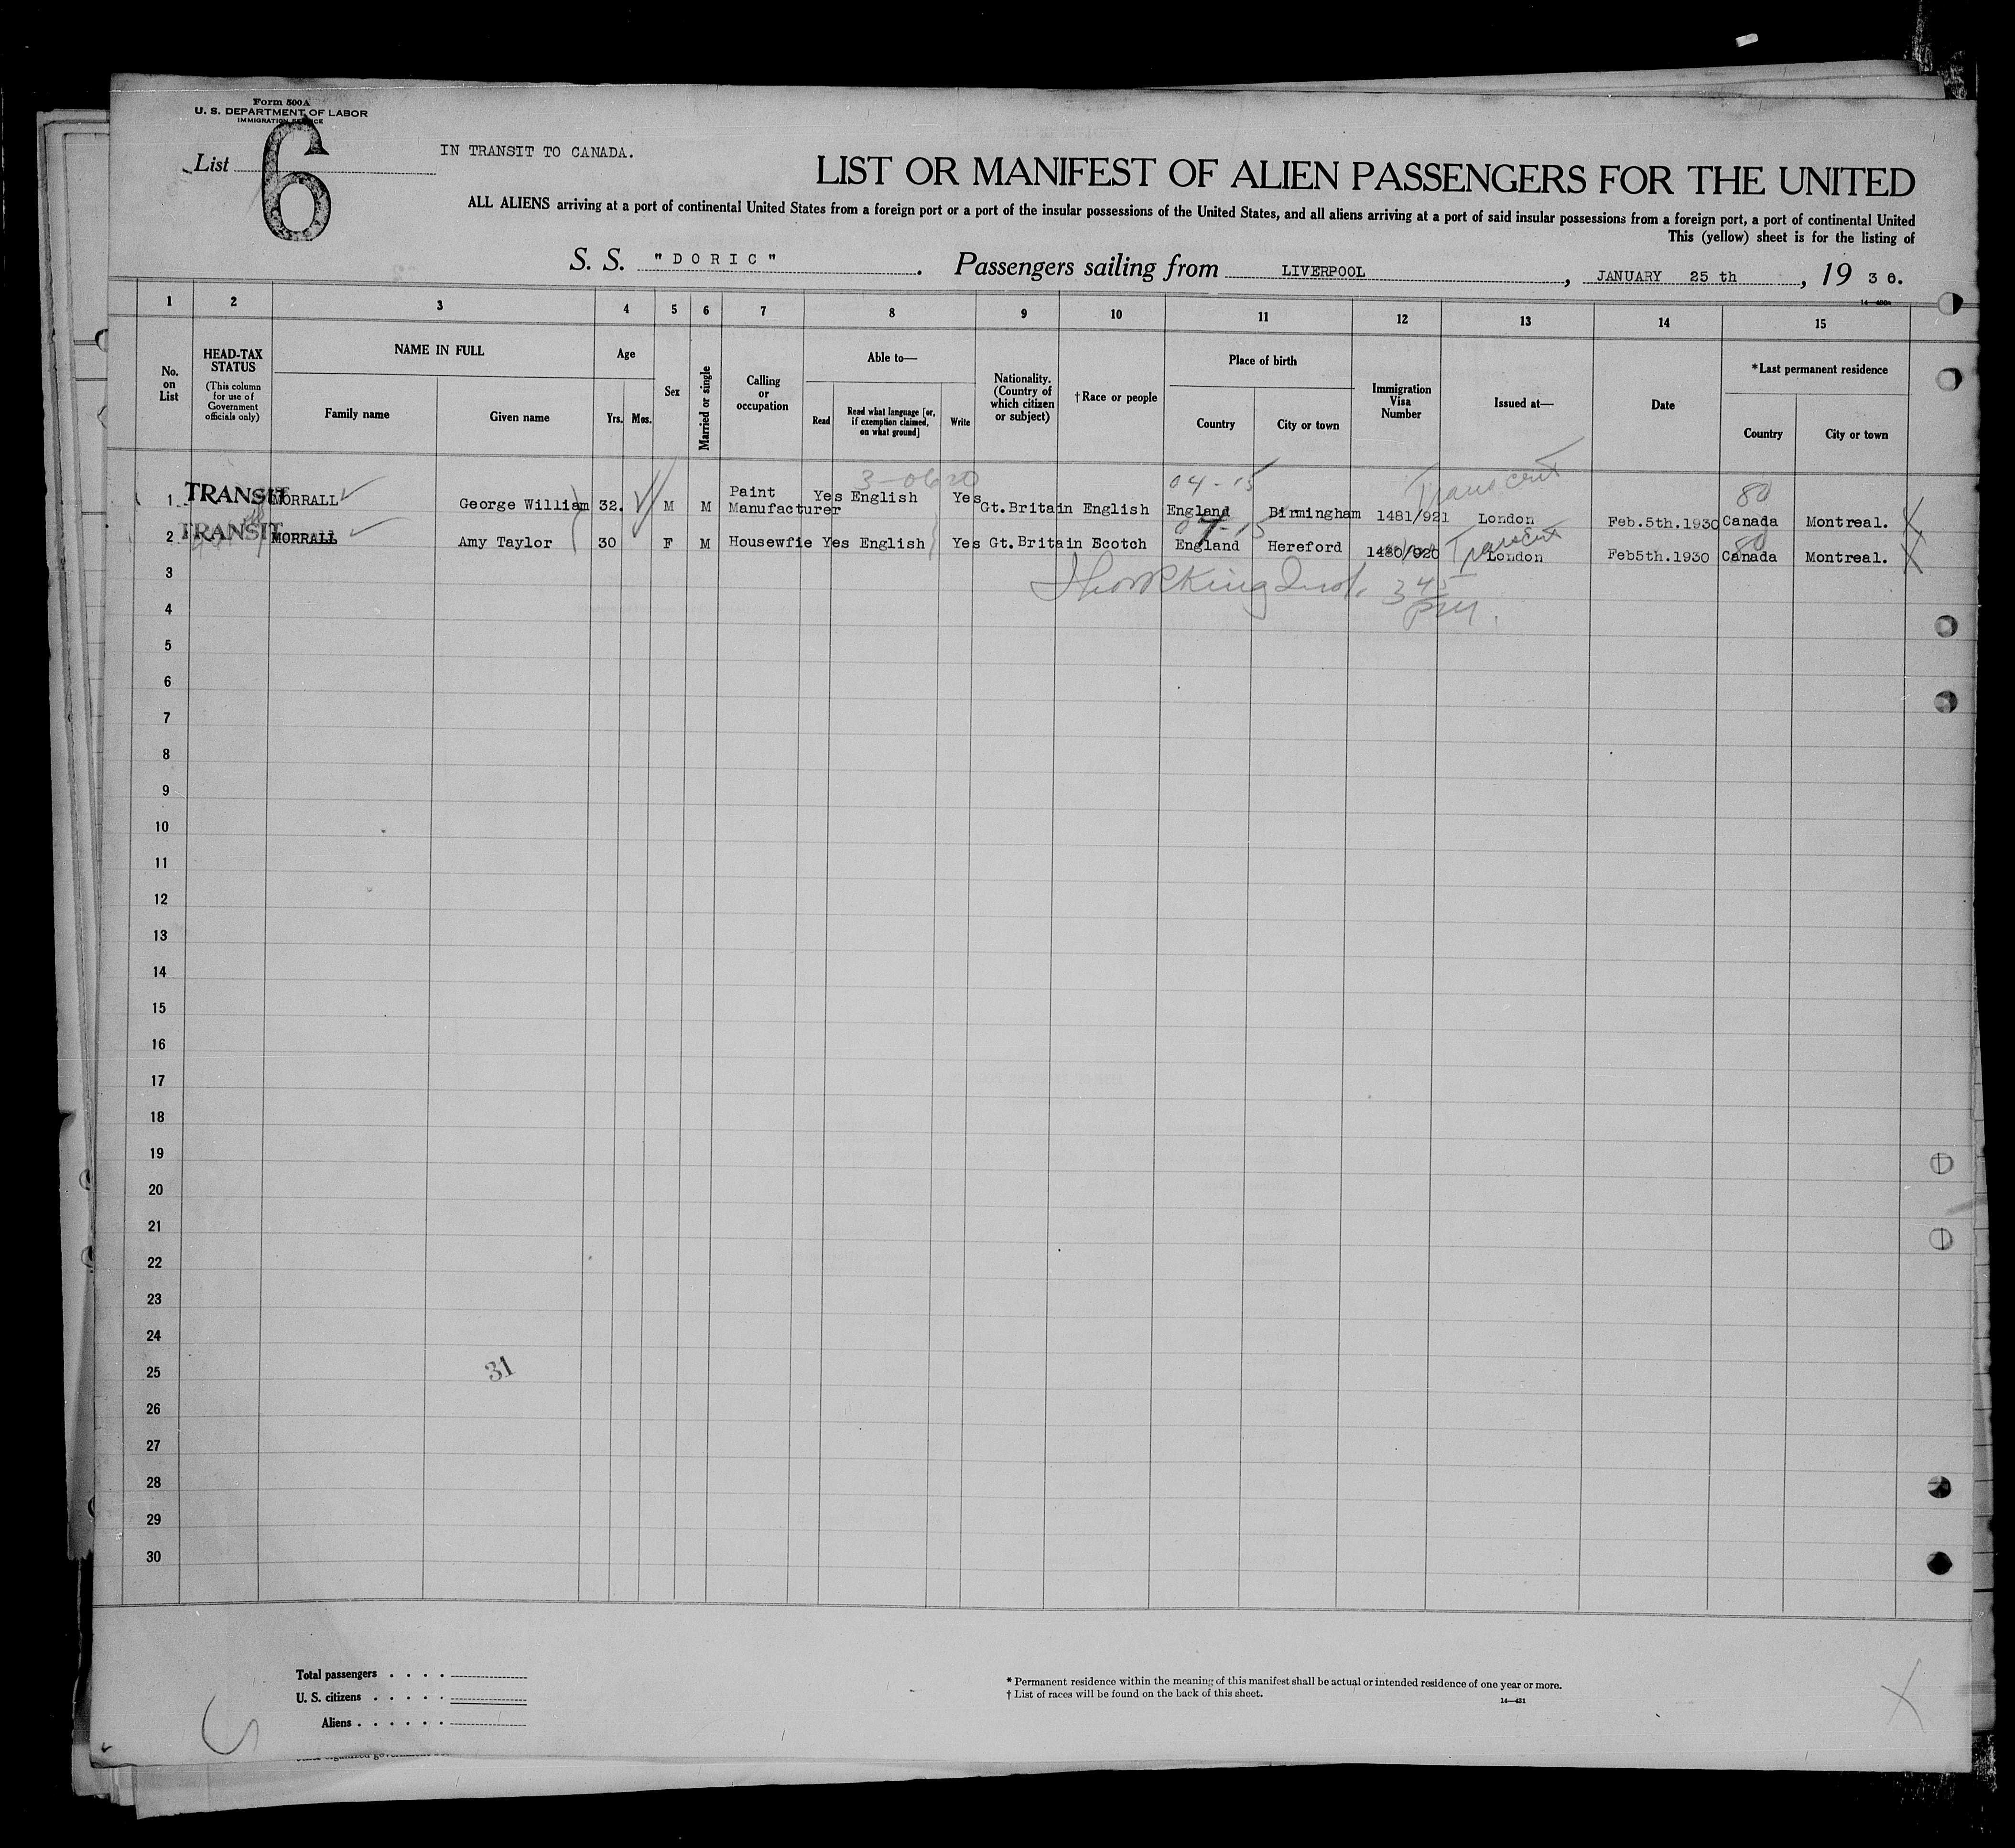 Form 500A
U. S. DEPARTMENT OF LABOR
IMMIGRATION SERVICE
List 6
IN TRANSIT TO CANADA.
LIST OR MANIFEST OF ALIEN PASSENGERS FOR THE UNITED
ALL ALIENS arriving at a port of continental United States from a foreign port or a port of the insular possessions of the United States, and all aliens arriving at a port of said insular possessions from a foreign port, a port of continental United
This (yellow) sheet is for the listing of
S. S. "DORIC". Passengers sailing from LIVERPOOL, JANUARY 25 th, 19 3 0.
1 2 3 4 5 6 7 8 9 10 11 12 13 14 15
No. on List
HEAD-TAX STATUS
(This column for use of Government officials only)
NAME IN FULL
Family name
Given name
Age
Yrs. Mos.
Sex
Married or single
Calling or occupation
Able to—
Read
Read what language [or, if exemption claimed, on what ground]
Write
Nationality. (Country of which citizen or subject)
†Race or people
Place of birth
Country
City or town
Immigration Visa Number
Issued at—
Date
*Last permanent residence
Country
City or town
3-0620 04-15 80
1 TRANSIT MORRALL George William 32. M M Paint Manufacturer Yes English Yes Gt.Britain English England Birmingham 1481/921 London Feb.5th.1930 Canada Montreal.
2 TRANSIT MORRALL Amy Taylor 30 F M Housewfie Yes English Yes Gt.Britain Scotch England Hereford 1480/920 London Feb5th.1930 Canada Montreal.
3
4
5
6
7
8
9
10
11
12
13
14
15
16
17
18
19
20
21
22
23
24
25
31
26
27
28
29
30
Total passengers . . . .
U. S. citizens . . . . .
Aliens . . . . . .
* Permanent residence within the meaning of this manifest shall be actual or intended residence of one year or more.
† List of races will be found on the back of this sheet.
14—431